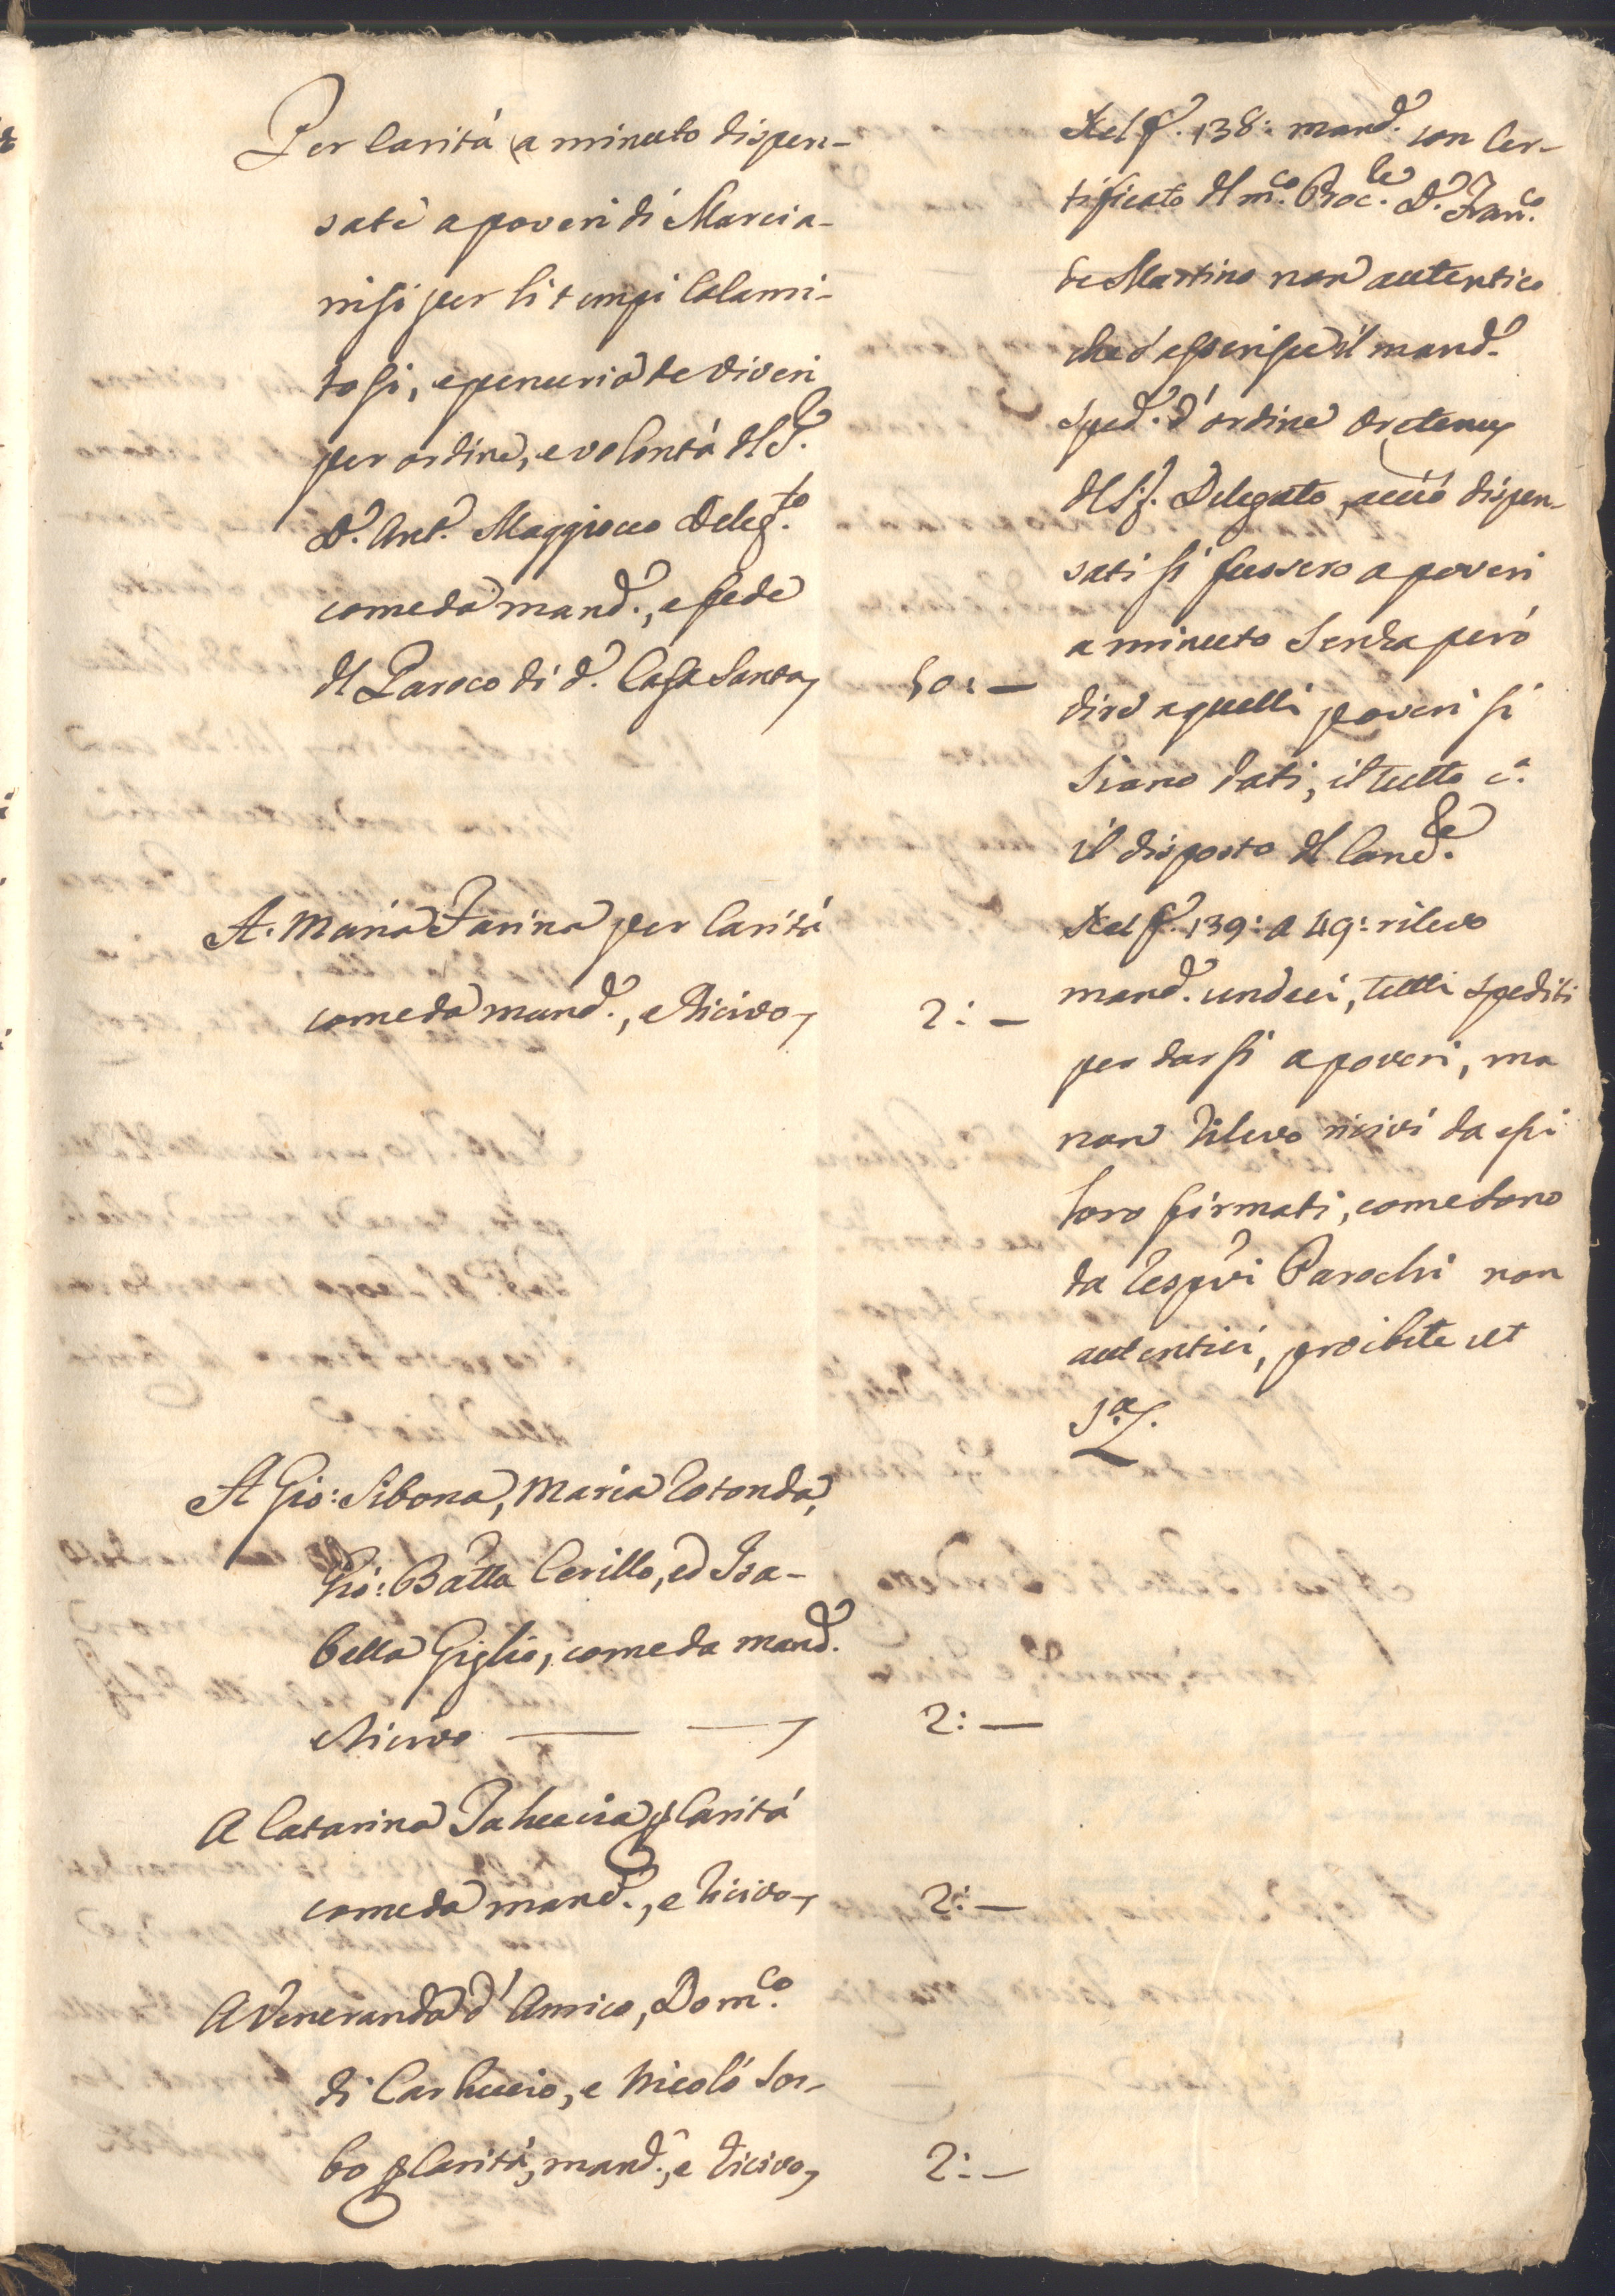 Per Carità a minuto dispen-
sate a poveri di Marcia-
nisi per li tempi calami-
tosi, e penuria de viveri
per ordine, e volontà del S.r
D. Ant.o Maggiocco Deleg.to
come da mand.o, e fede
del Paroco di d.a Casa Santa
50: —
A Maria Farina per Carità
come da mand.o, e ricivo
2: —
A Gio: Sibona, Maria Rotonda,
Gio: Batta Cerillo, ed Isa-
bella Giglio, come da mand.o
e ricivo
2: —
A Catarina per Carità
come da mand.o, e ricivo
2: —
A Veneranda d'Amico, Dom.co
di Carluccio, e Nicolò Sor-
bo per Carità, mand.o, e ricivo
2: —
Nel f. 138: mand.o con Cer-
tificato del m.co Proc.le D. Fran.co
de Martino non autentico
che asserisce il mand.o
sped.o d'ordine
del S.r Delegato, acciò dispen-
sati si fussero a poveri
a minuto senza però
dire a quelli poveri si
siano dati, il tutto c.a
il disposto del
Nel f. 139: a 49: rilevo
mand.i undeci, tutti spediti
per darsi a poveri, ma
non rilevo ricivi da essi
loro firmati, come sono
da respvi Parochi non
autentici, proibite ut
s.a